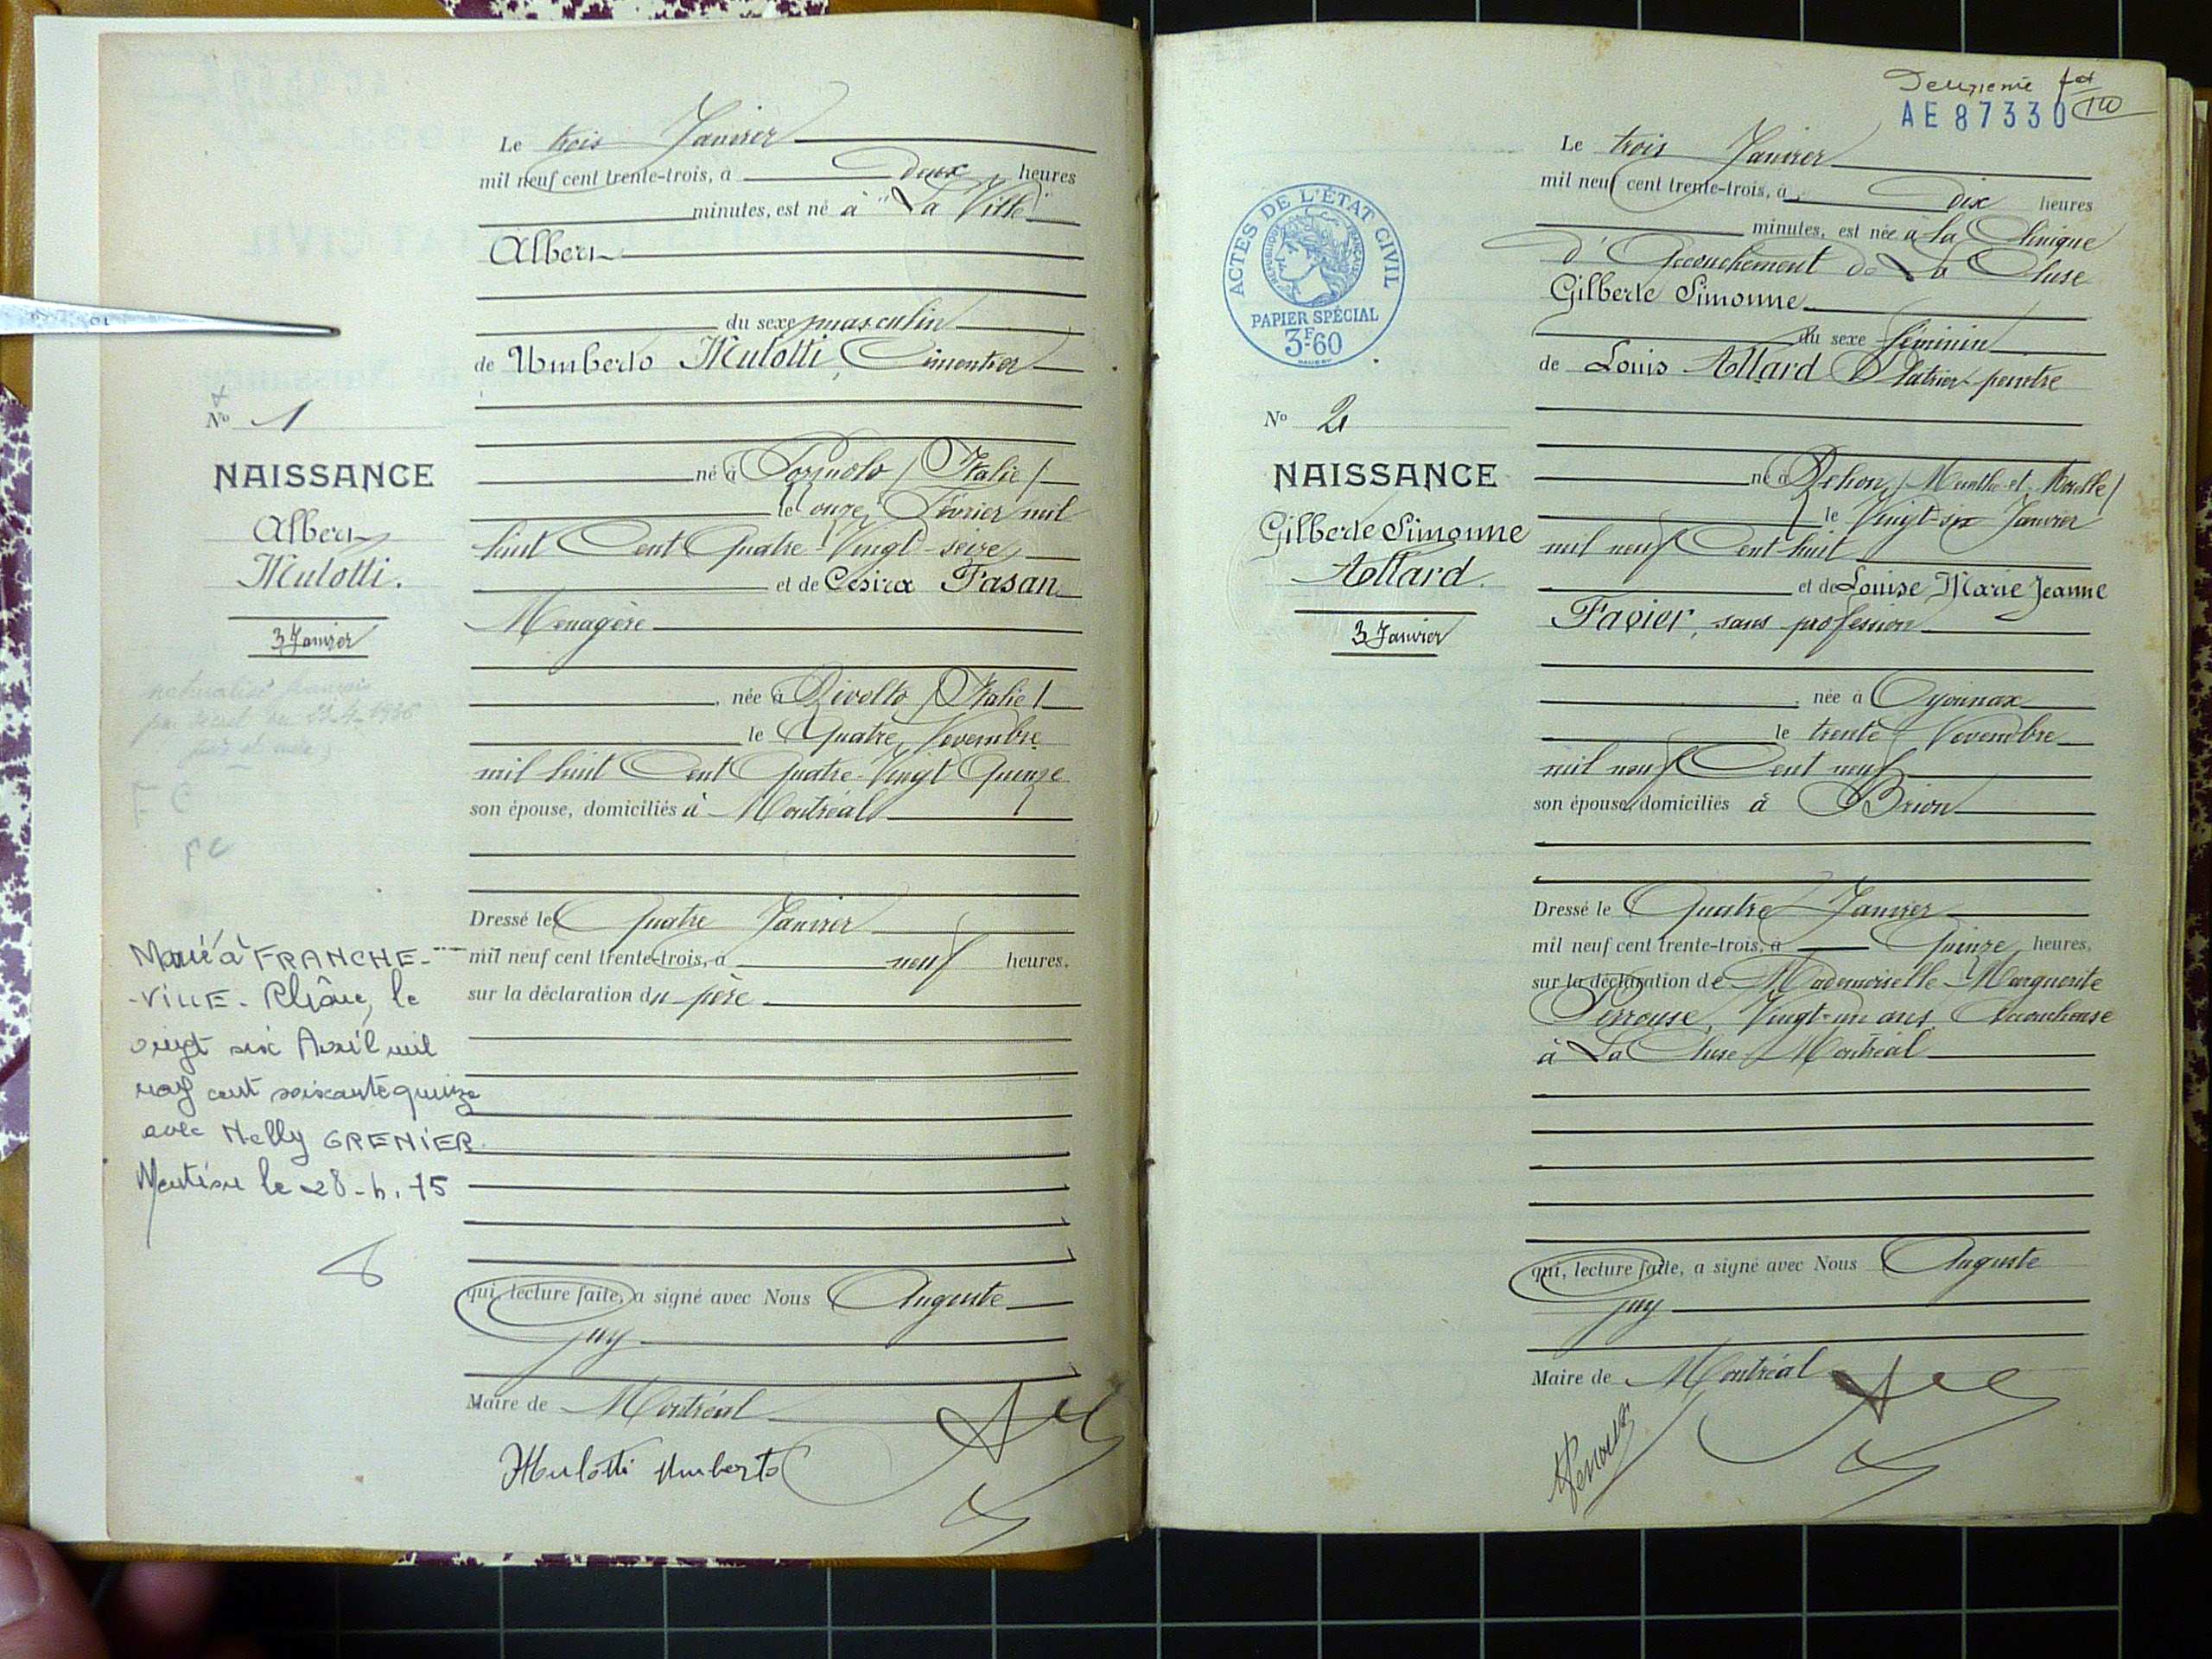 Le trois Janvier
mil neuf cent trente-trois, à deux heures
minutes, est né à "La Ville"
Albert
du sexe masculin
de Umberto Mulotti, Cimentier
né à (Italie)
le onze Février mil
huit Cent Quatre-Vingt-seize
et de Cesira Fasan
Menagère
, née à Rivolto (Italie)
le Quatre Novembre
mil huit Cent Quatre-Vingt Quinze
son épouse, domiciliés à Montréal
Dressé le Quatre Janvier
mil neuf cent trente-trois, à neuf heures.
sur la déclaration du père
qui, lecture faite, a signé avec Nous Auguste
Juy
Maire de Montréal
Mulotti Umberto
No 1
NAISSANCE
Albert
Mulotti.
3 Janvier
naturalisé français
par décret du 1936
Marié à FRANCHE-
-VILLE - Rhône, le
vingt six Avril mil
neuf cent soixante quinze
avec Nelly GRENIER
Mention le 28-4.75
Deuxième
AE 87330
Le trois Janvier
mil neuf cent trente-trois, à Dix heures
minutes, est née à la Clinique
d'Accouchement de La Cluse
Gilberte Simonne
du sexe féminin
de Louis Allard Plâtrier-peintre
né à Rehon (Meurthe-et-Moselle)
le Vingt-six Janvier
mil neuf Cent huit
et de Louise Marie Jeanne
Favier, sans profession
, née à Oyonnax
le trente Novembre
mil neuf Cent neuf
son épouse, domiciliés à Brion
Dressé le Quatre Janvier
mil neuf cent trente-trois, à Quinze heures,
sur la déclaration de Mademoiselle Marguerite
Perrouse, Vingt-un ans, Accoucheuse
à La Cluse-Montréal
qui, lecture faite, a signé avec Nous Auguste
Juy
Maire de Montréal
ACTES DE L'ÉTAT CIVIL
RÉPUBLIQUE FRANÇAISE
PAPIER SPÉCIAL
3F60
No 2
NAISSANCE
Gilberte Simonne
Allard.
3 Janvier